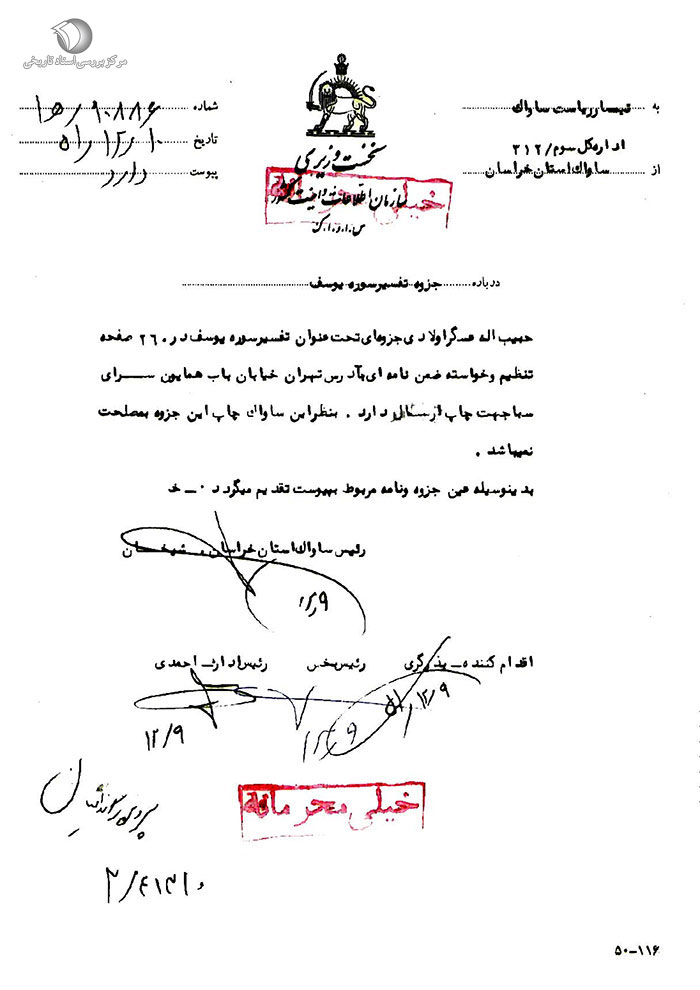 مرکز بررسی اسناد تاریخی
به تیمسار ریاست ساواک
اداره کل سوم/۳۱۲
از ساواک استان خراسان
نخست وزیری
سازمان اطلاعات و امنیت کشور
س.ا.و.ا.ک
خیلی محرمانه
شماره ۹۰۸۸۶/ﻫ۱
تاریخ ۱۰/۱۲/۵۱
پیوست دارد
درباره جزوه تفسیر سوره یوسف
حبیب اله عسگراولادی جزوه‌ای تحت عنوان تفسیر سوره یوسف در ۲۶۰ صفحه
تنظیم و خواسته ضمن نامه ای بآدرس تهران خیابان باب همایون سرای
سبا جهت چاپ ارسال دارد . بنظر این ساواک چاپ این جزوه بمصلحت
نمیباشد .
بدینوسیله عین جزوه و نامه مربوط بپیوست تقدیم میگردد ۰ـ خ
رئیس ساواک استان خراسان . شیخان
۱۲/۹
اقدام کننده ـ رئیس بخش رئیس اداره احمدی
۱۲/۹
۱۲/۹
۱۲/۹
خیلی محرمانه
۵۰-۱۱۶